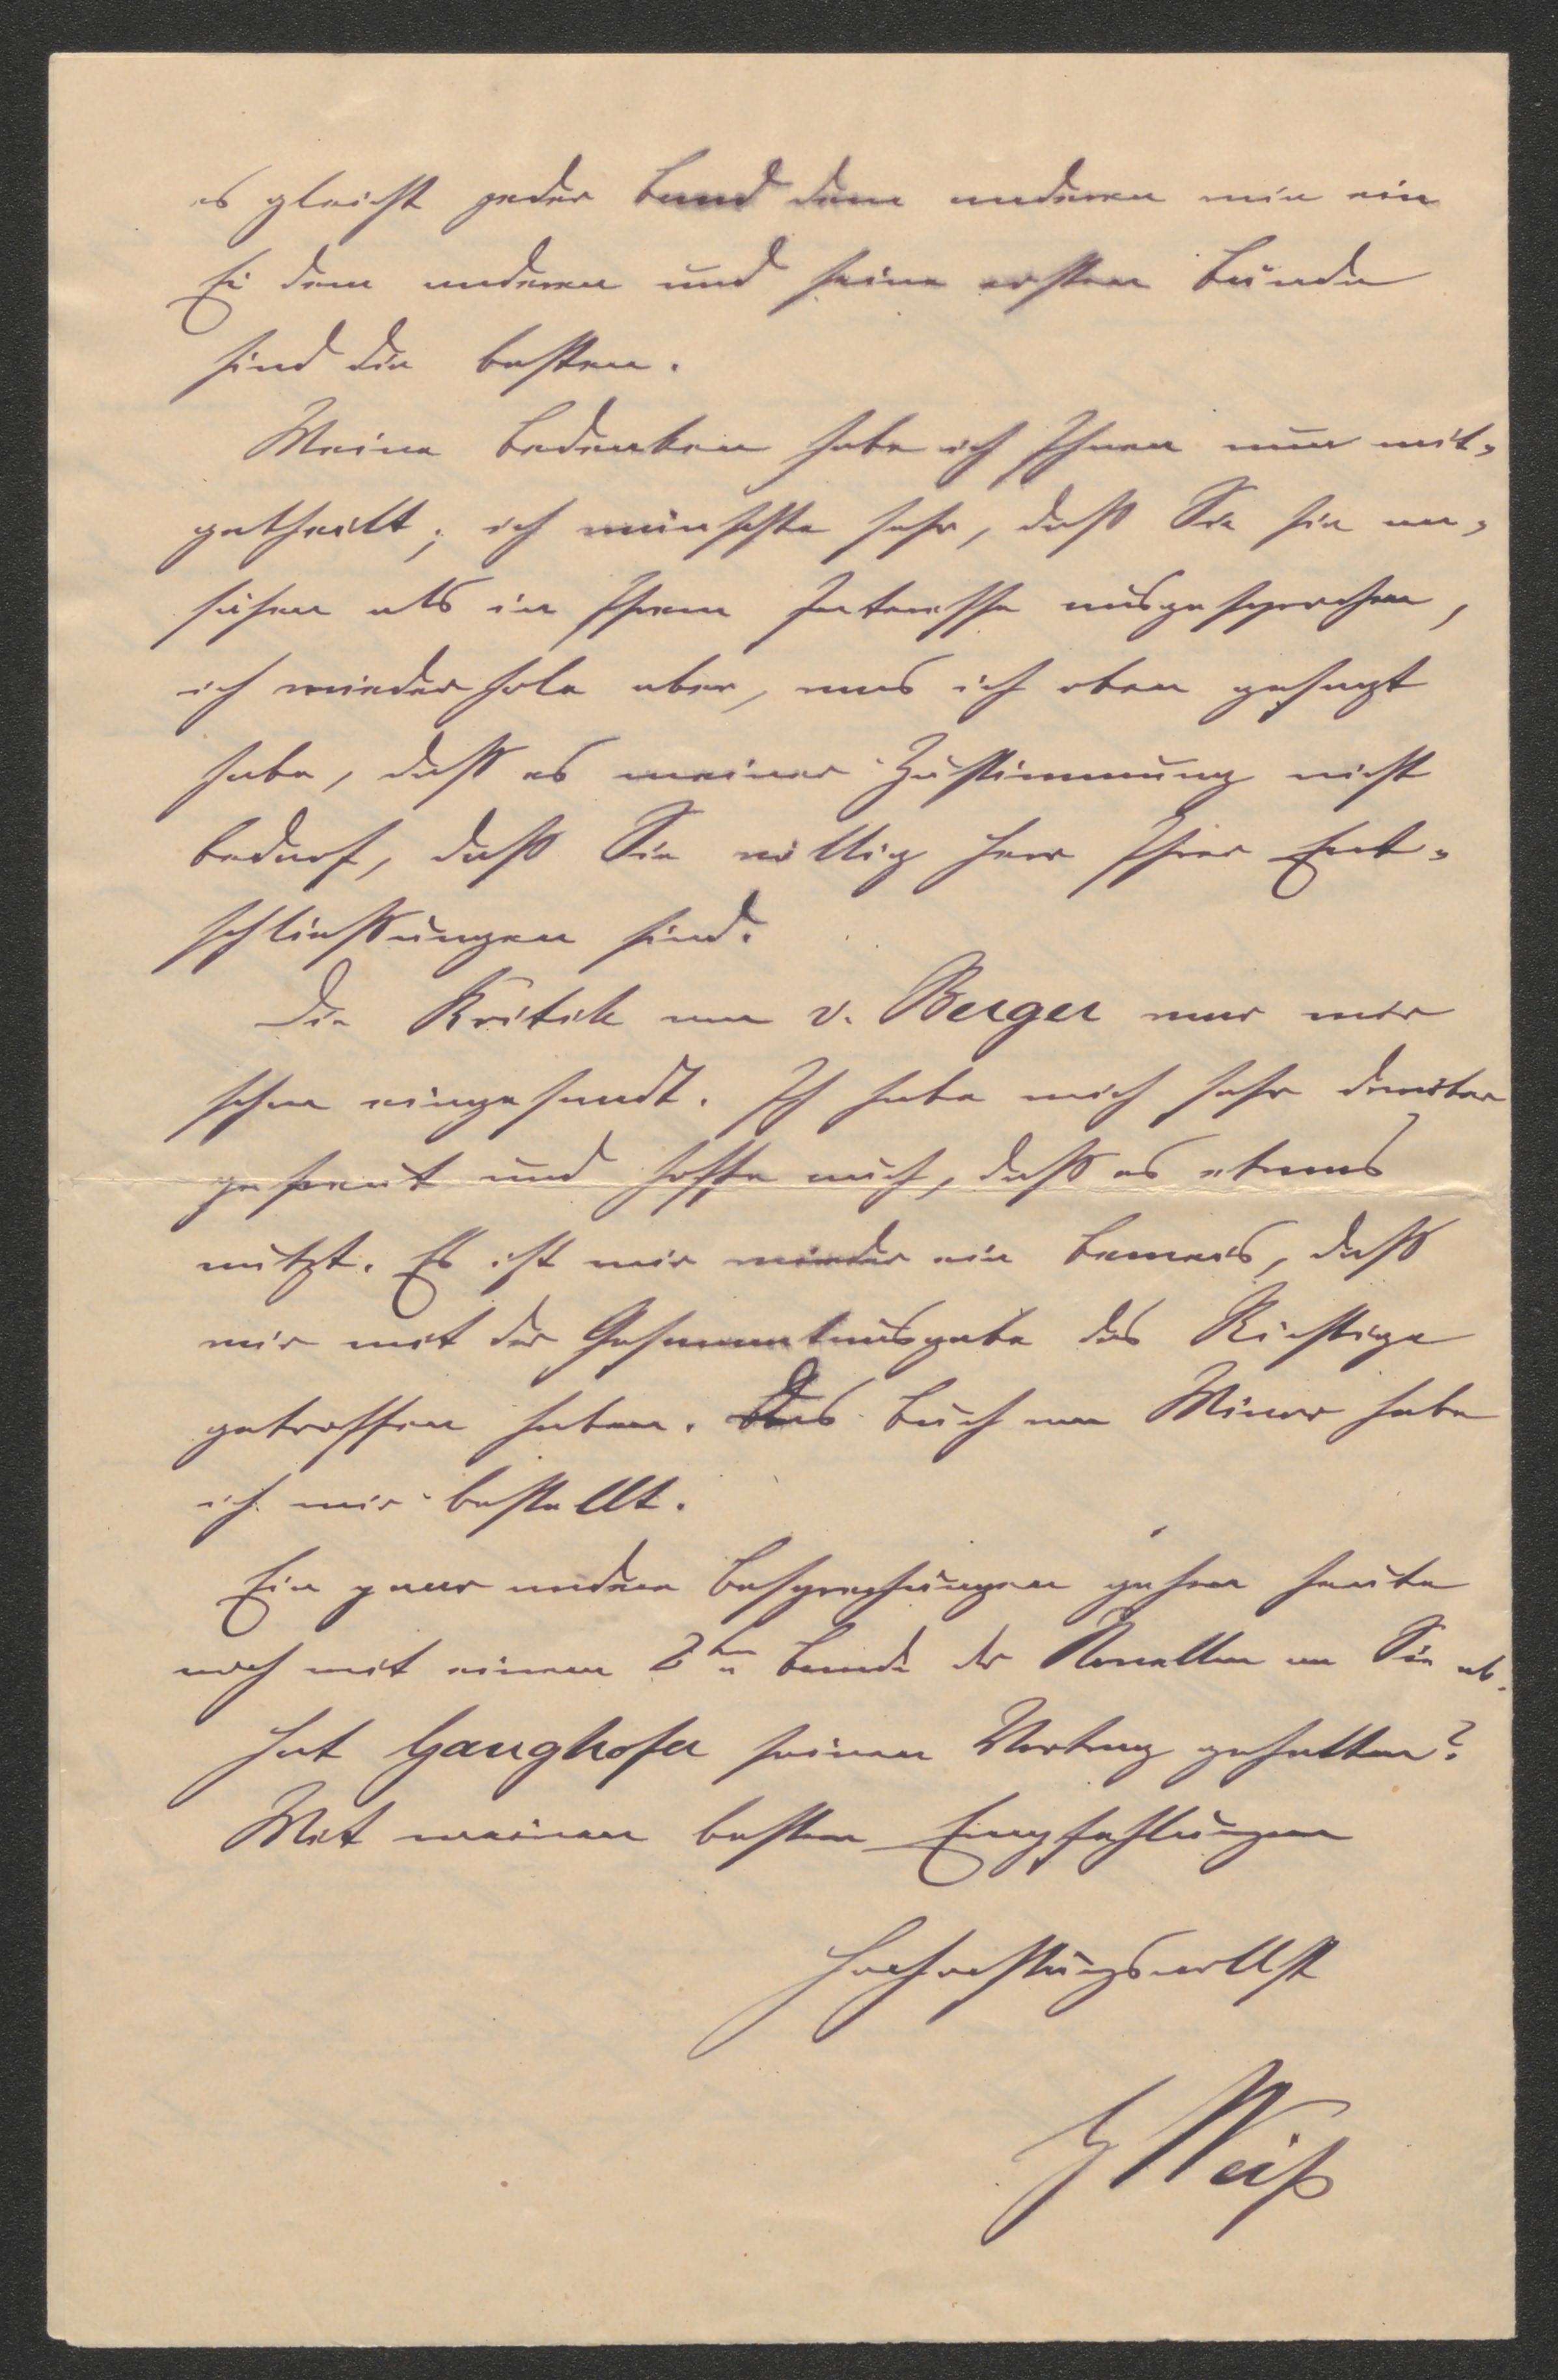 es gleicht jeder Band dem anderen wie ein
Ei dem anderen und seine ersten Bände
sind die besten.
Meine Bedenken habe ich Ihnen nun mit=
getheilt; ich wünschte sehr, daß Sie sie an=
sähen als in Ihrem Interesse ausgesprochen,
ich wiederhole aber, was ich oben gesagt
habe, daß es meiner Zustimmung nicht
bedarf, daß Sie völlig Herr Ihrer Ent=
schließungen sind.
Die Kritik von v. Berger war mir
schon eingesandt. Ich habe mich sehr darüber
gefreut und hoffe auch, daß es etwas
nützt. Es ist mir wieder ein Beweis, daß
wir mit der Gesammtausgabe das Richtige
getroffen haben. Das Buch von Minor habe
ich mir bestellt.
Ein paar andere Besprechungen gehen heute
noch mit einem 2ten Bande der Novellen an Sie ab.
Hat Ganghofer seinen Vortrag gehalten?
Mit meinen besten Empfehlungen
Hochachtungsvollst
H Weiß